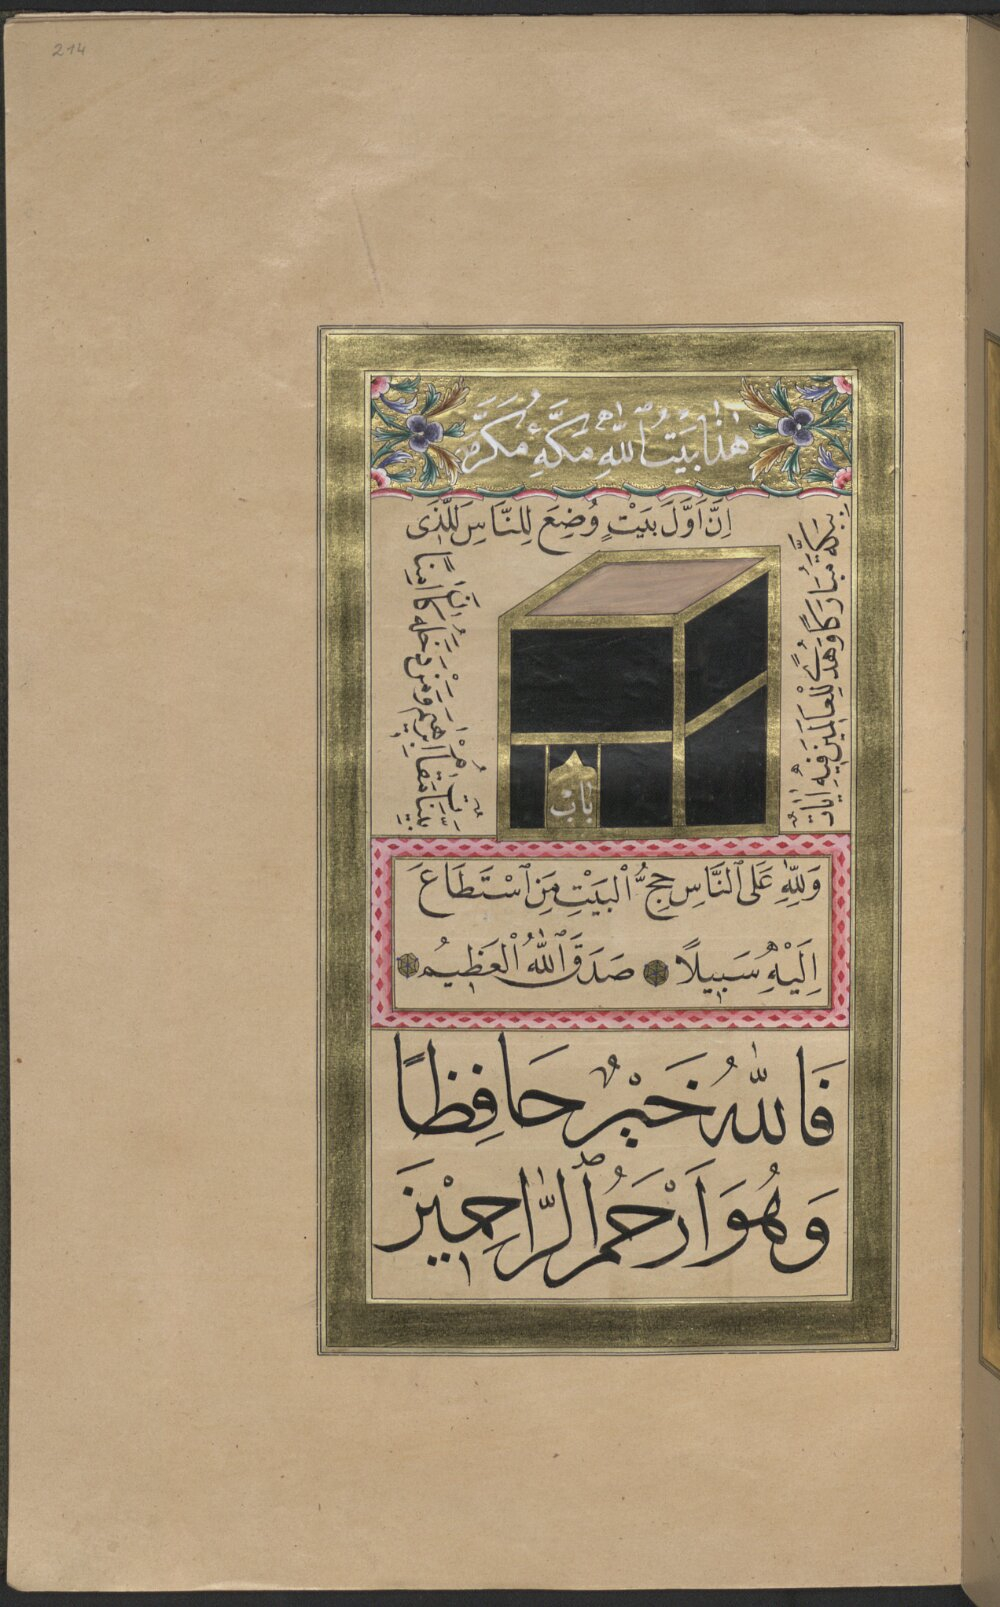 214
هٰذَا بَيْتُ اللّٰهِ مَكَّهِٔ مُكَرَّمَه
اِنَّ اَوَّلَ بَيْتٍ وُضِعَ لِلنَّاسِ لَلَّذٖى
بِبَكَّةَ مُبَارَكًا وَهُدًى لِلْعَالَمٖينَ فٖيهِ اٰيَاتٌ
بَيِّنَاتٌ مَقَامُ اِبْرٰهٖيمَ وَمَنْ دَخَلَهُ كَانَ اٰمِنًا
بَابْ
وَلِلّٰهِ عَلَى ٱلنَّاسِ حِجُّ ٱلْبَيْتِ مَنِ ٱسْتَطَاعَ
اِلَيْهِ سَبٖيلًا صَدَقَ ٱللّٰهُ ٱلْعَظٖيمُ
فَاللّٰهُ خَيْرٌ حَافِظًا
وَهُوَ اَرْحَمُ ٱلرَّاحِمٖينَ